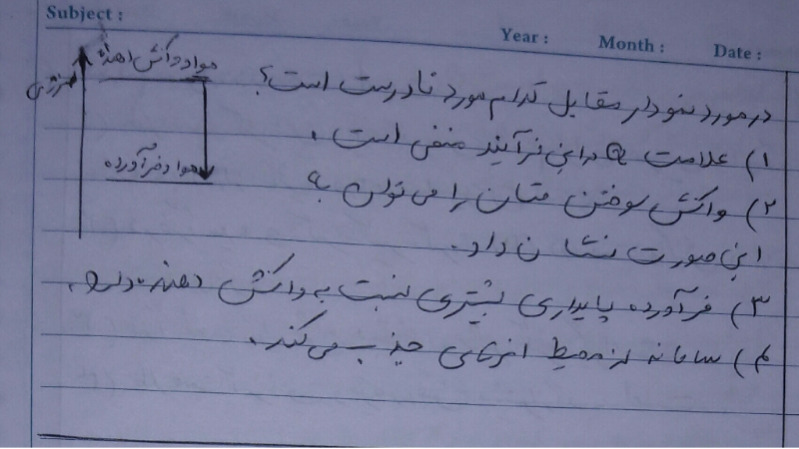 Subject :
Year : Month : Date :
مواد واکنش دهنده
انرژی
مواد فرآورده
در مورد نمودار مقابل کدام مورد نادرست است؟
۱) علامت Q در این فرآیند منفی است .
۲) واکنش سوختن متان را می توان به
این صورت نشان داد.
۳) فرآورده پایداری بیشتری نسبت به واکنش دهنده دارد .
۴) سامانه از محیط انرژی جذب می کند .